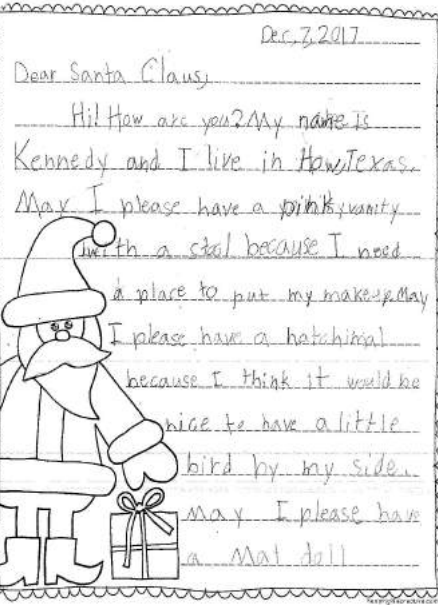 Dec, 7, 2017
Dear Santa Claus,
Hi! How are you? My name is
Kennedy and I live in Howe, Texas.
May I please have a pink, vanity
with a stool because I need
a place to put my makeup. May
I please have a hatchimal
because I think it would be
nice to have a little
bird by my side.
May I please have
a Mat doll